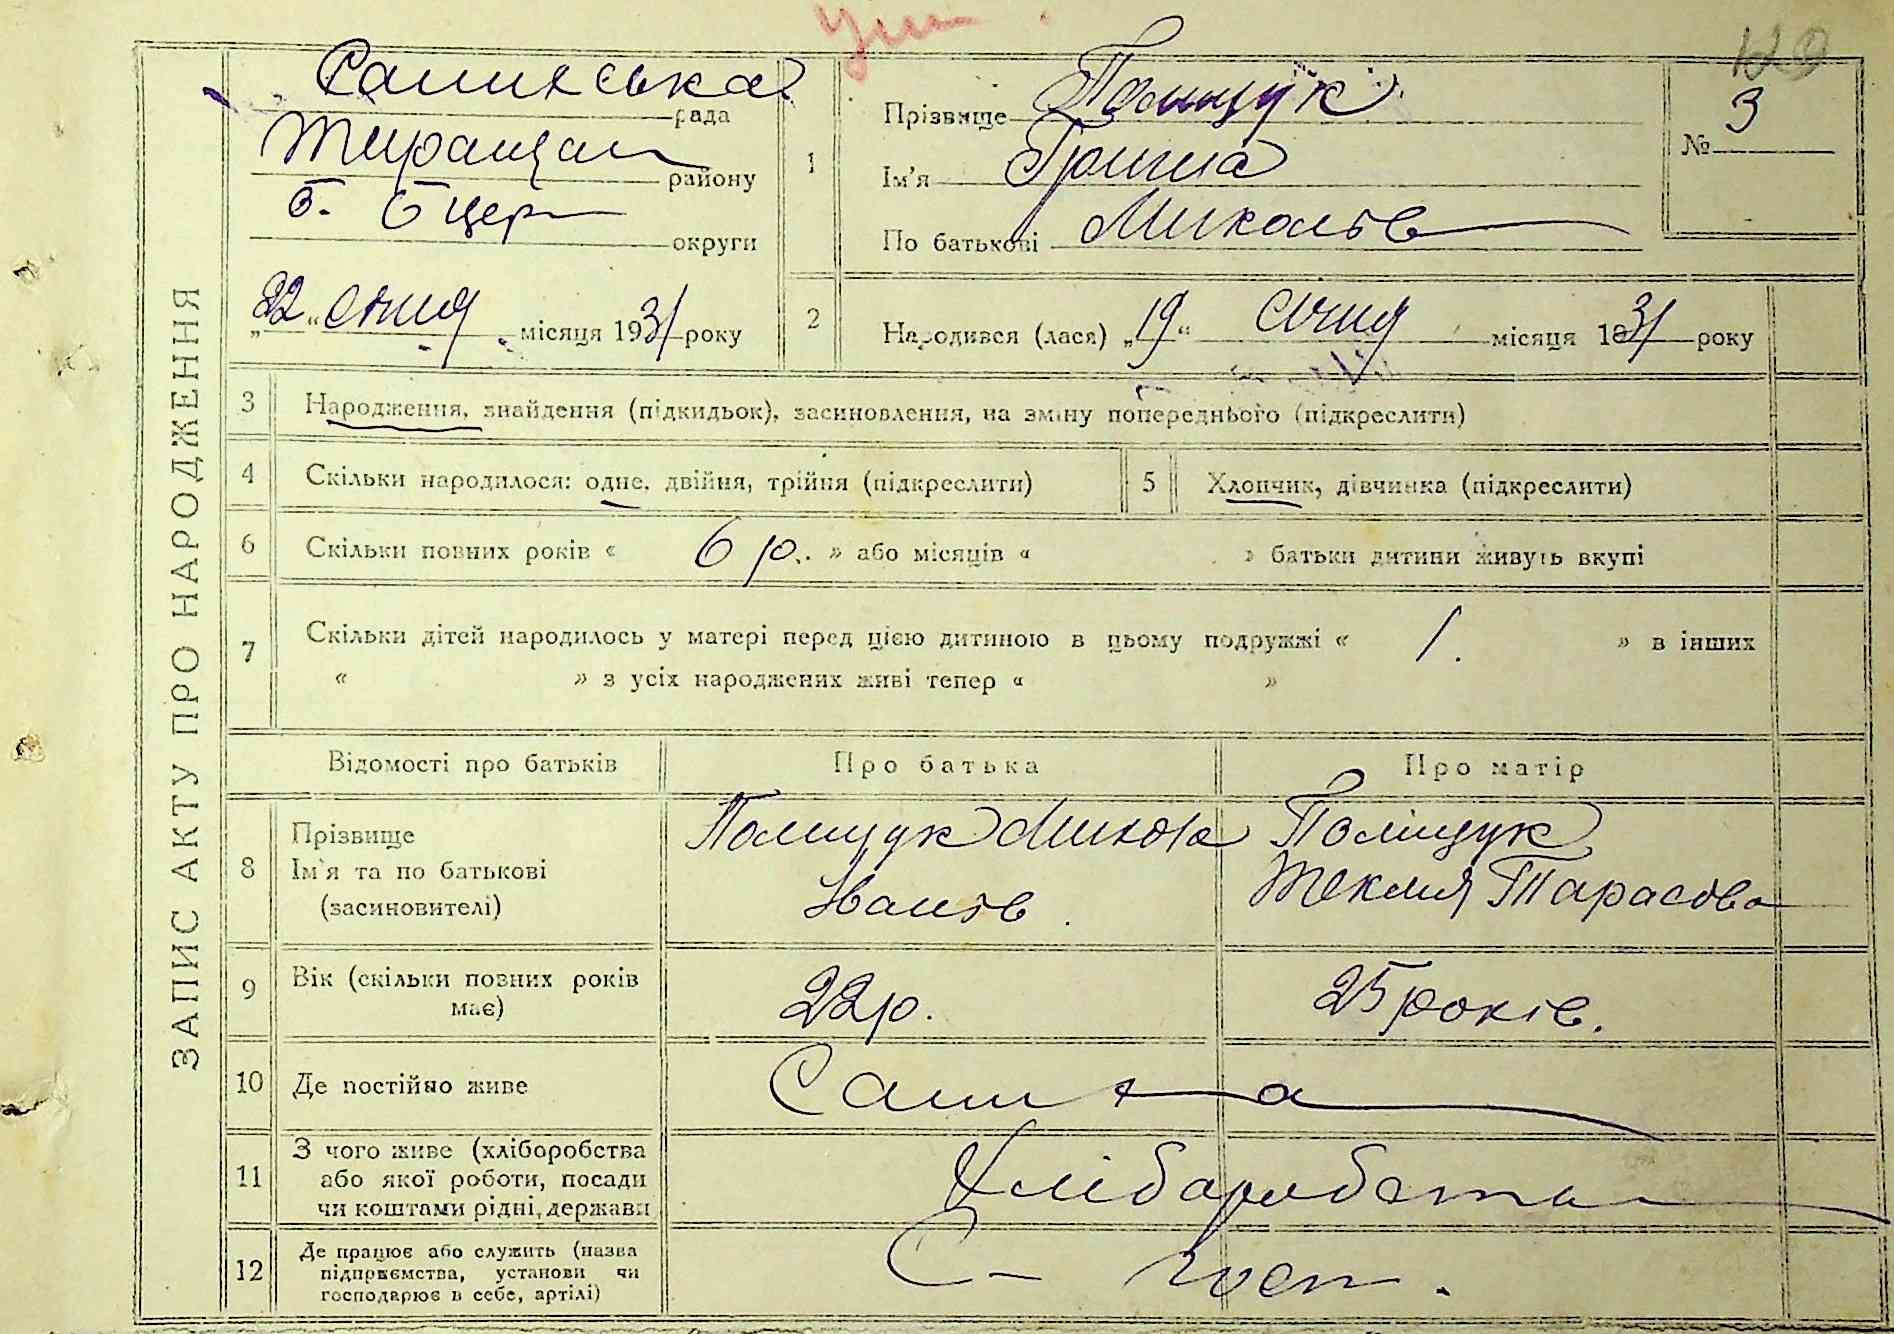 Ум
120
ЗАПИС АКТУ ПРО НАРОДЖЕННЯ
рада
району
Б. Бцер округи
„22“ січня місяця 1931 року
1
Прізвище Поліщук
Ім'я Гриша
По батькові Миколів
№ 3
2
Народився (лася) „19“ січня місяця 1931 року
3 Народження, знайдення (підкидьок), засиновлення, на зміну попереднього (підкреслити)
4 Скільки народилося: одне, двійня, трійня (підкреслити)
5 Хлопчик, дівчинка (підкреслити)
6 Скільки повних років « 6 р. » або місяців « » батьки дитини живуть вкупі
7 Скільки дітей народилось у матері перед цією дитиною в цьому подружжі « 1. » в інших
« » з усіх народжених живі тепер « »
Відомості про батьків Про батька Про матір
8
Прізвище
Ім'я та по батькові
(засиновителі)
Полищук Микола
Іванів.
Поліщук
Текля Тарасова
9 Вік (скільки повних років
має)
22р. 25 років.
10 Де постійно живе
11
З чого живе (хліборобства
або якої роботи, посади
чи коштами рідні, держави
12
Де працює або служить (назва
підприємства, установи чи
господарює в себе, артілі)
С- госп.